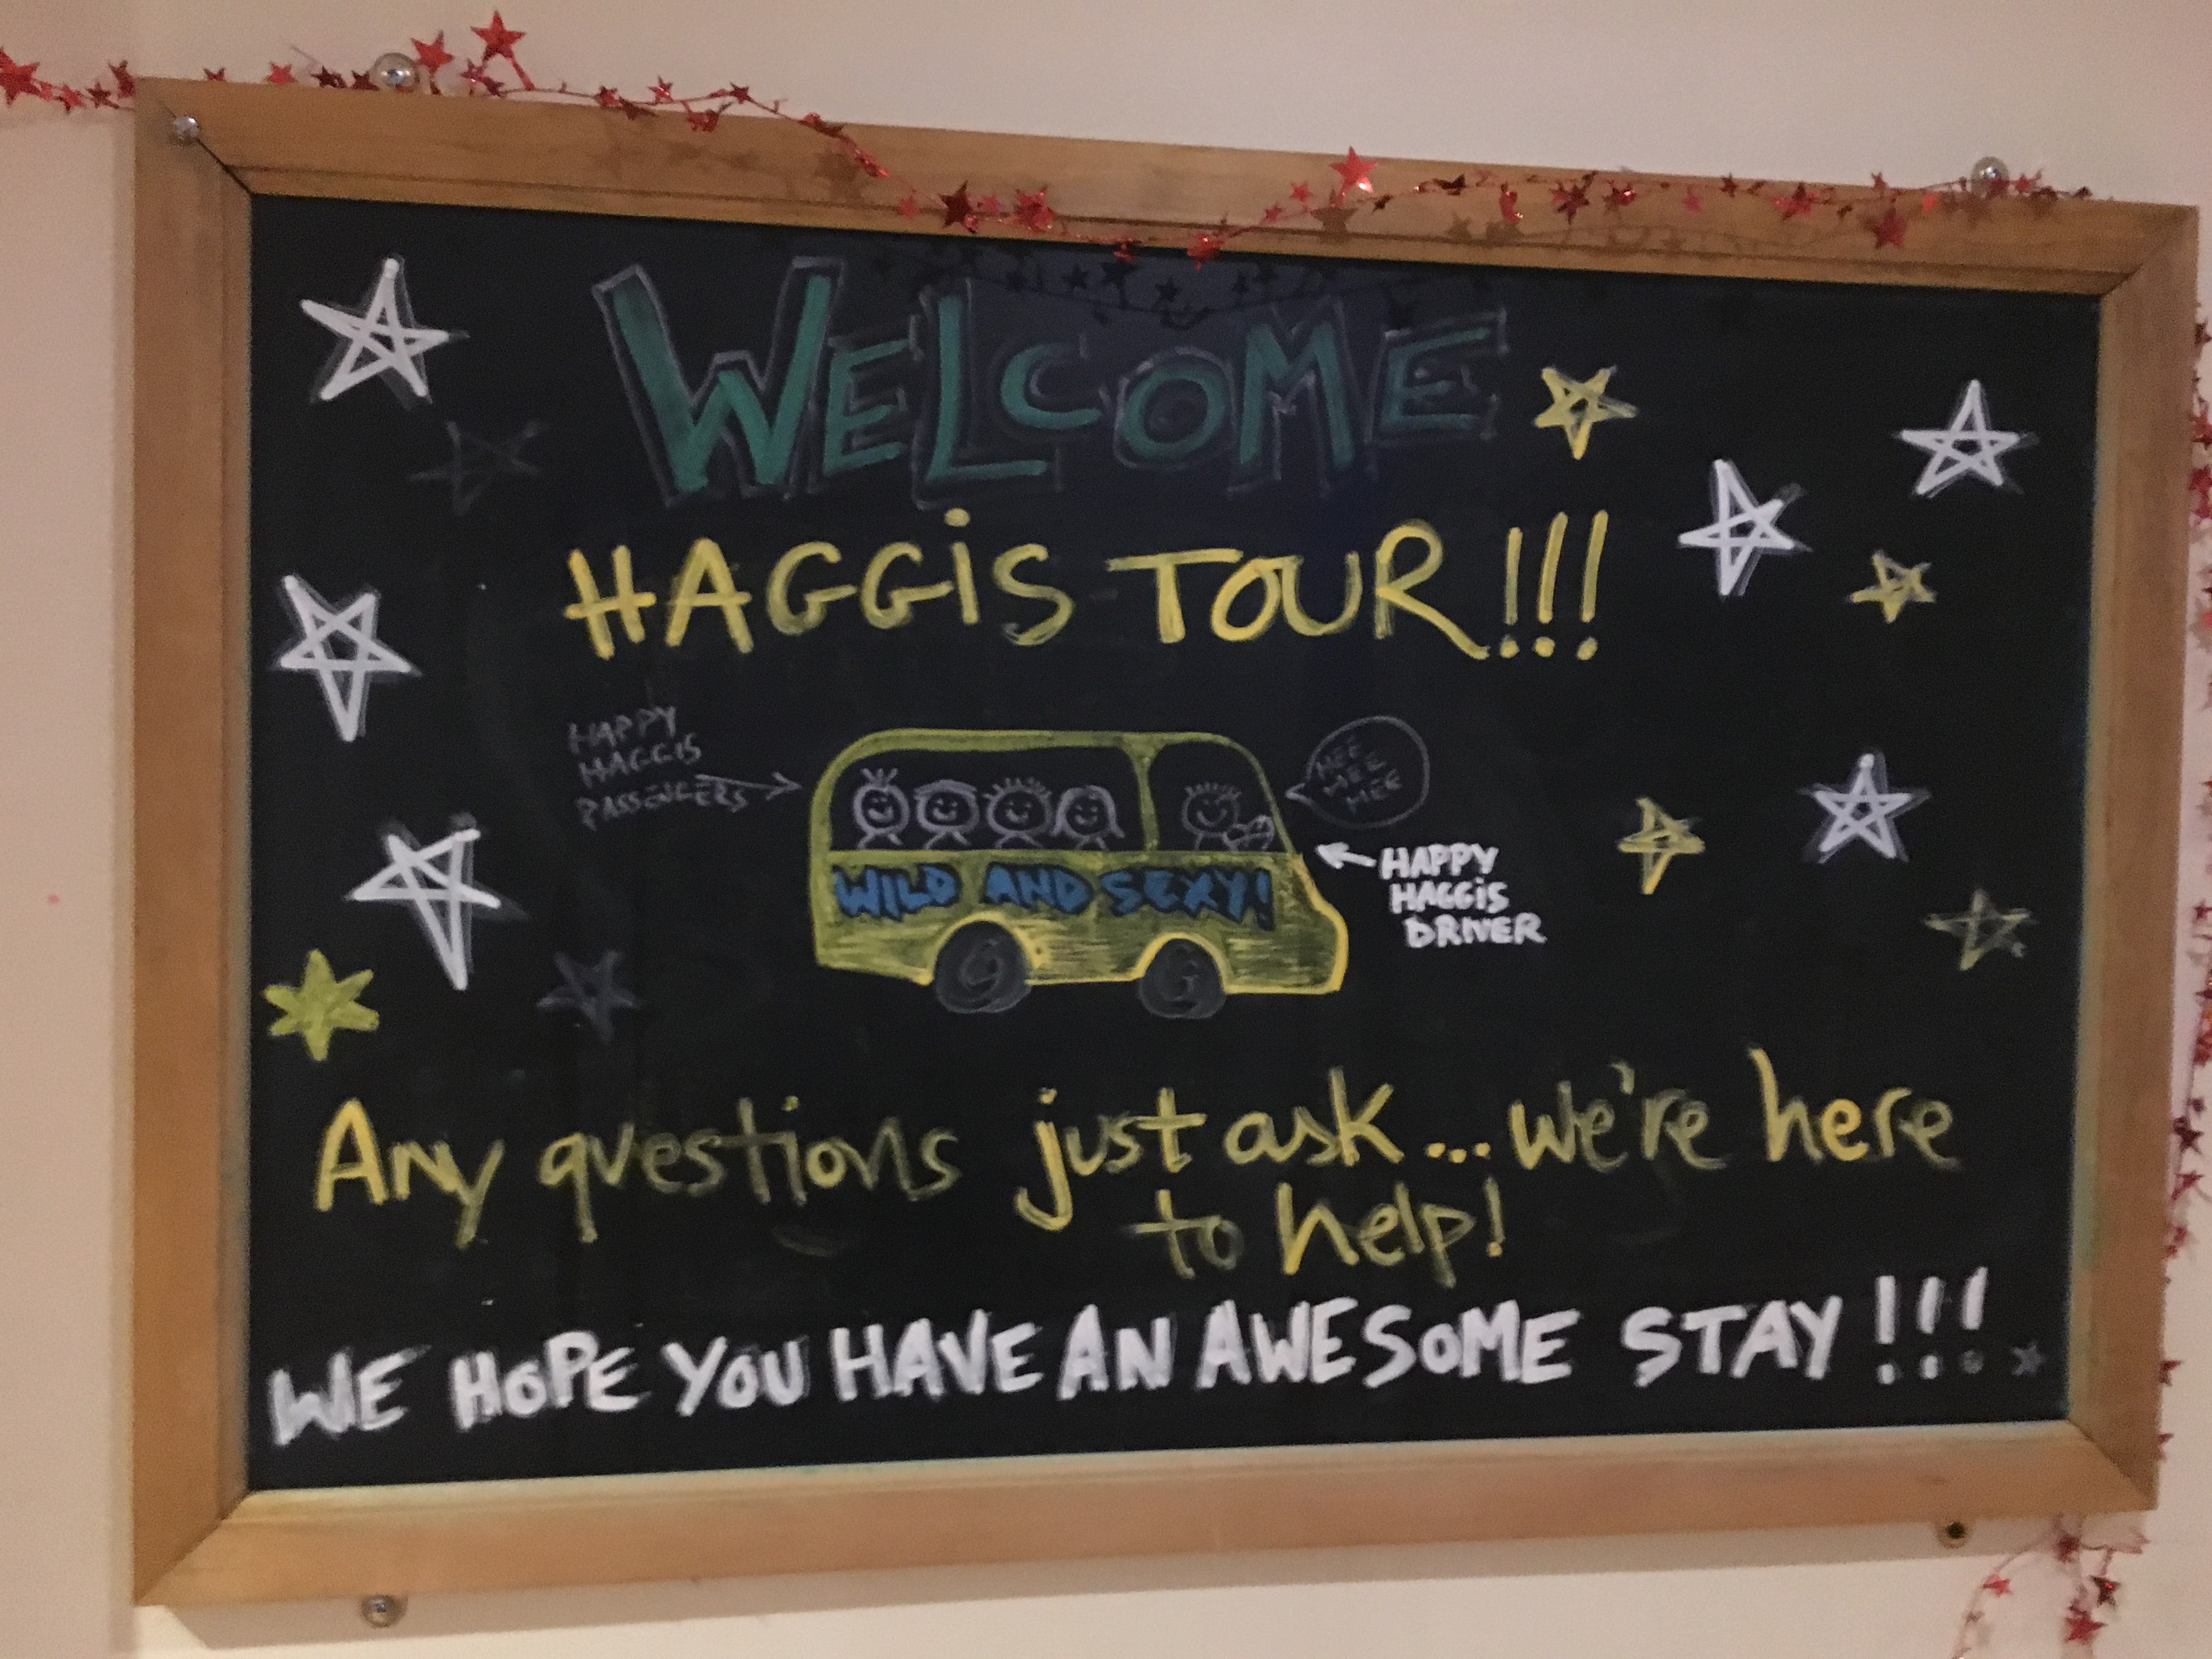 WELCOME
HAGGiS TOUR!!!
HAPPY
HAGGIS
PASSENGERS
MEE
MEE
MEE
WILD AND SEXY!
HAPPY
HAGGiS
DRIVER
Any questions just ask... we're here
to help!
WE HOPE YOU HAVE AN AWESOME STAY!!!